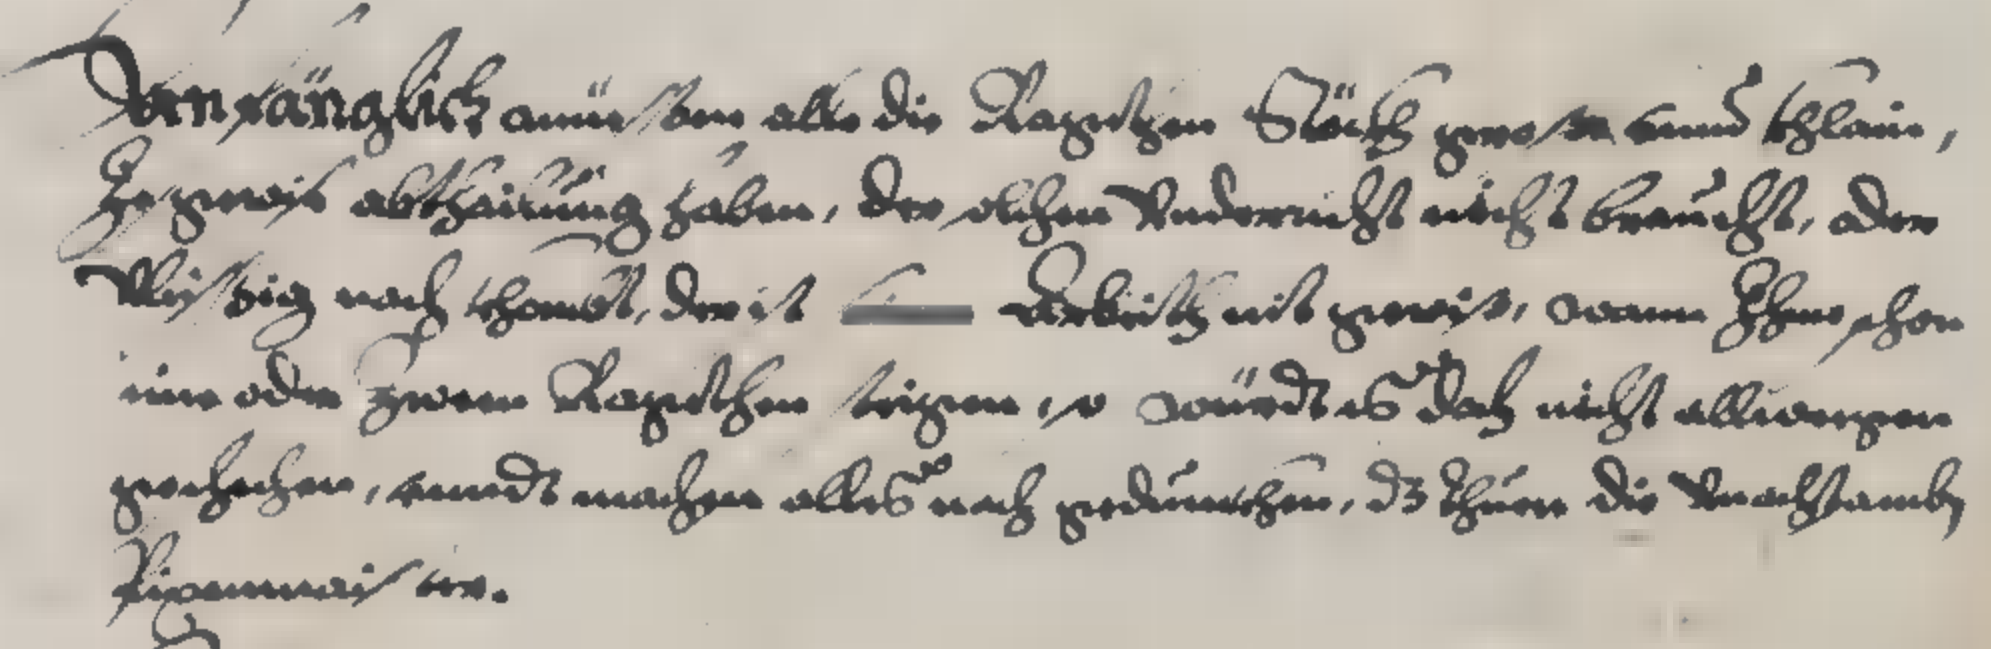 Annfänglich müessen alle die Ragethen Stöckh groß unnd khlain,
Ihr gewiß abthailung haben, der solchen Underricht nicht braucht, oder
vleissig nach khombt, der ist Arbeith nit gewiß, wann Ihme schon
eine oder zween Ragethen steigen, so würdt es doch nicht allwegen
geschechen, unndt machen alles nach gedunckhen, dz thuen die Unachtsamb
Feirmaister.